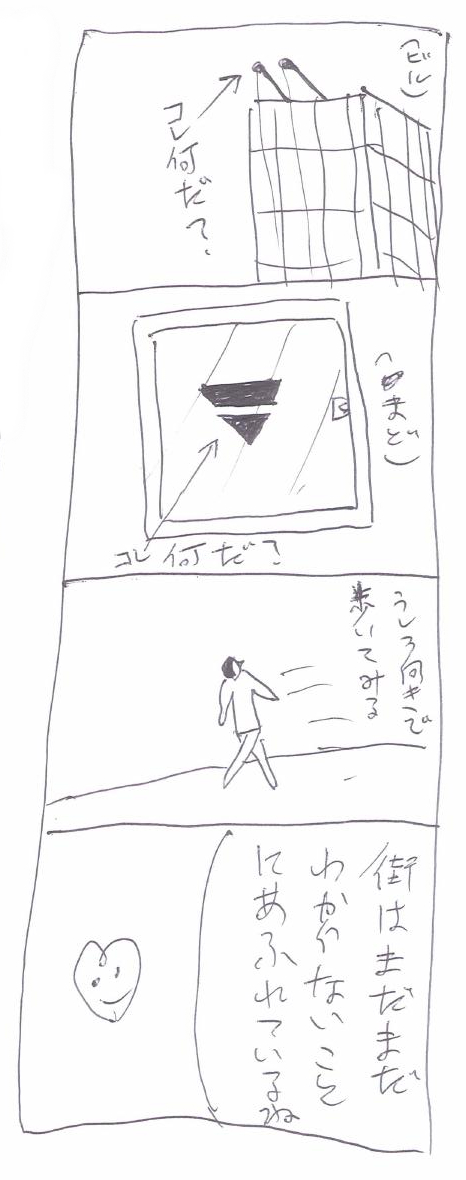 (ビル)
コレ何だ?
(まど)
コレ何だ?
うしろ向きで
歩いてみる
街はまだまだ
わからないこと
にあふれているね